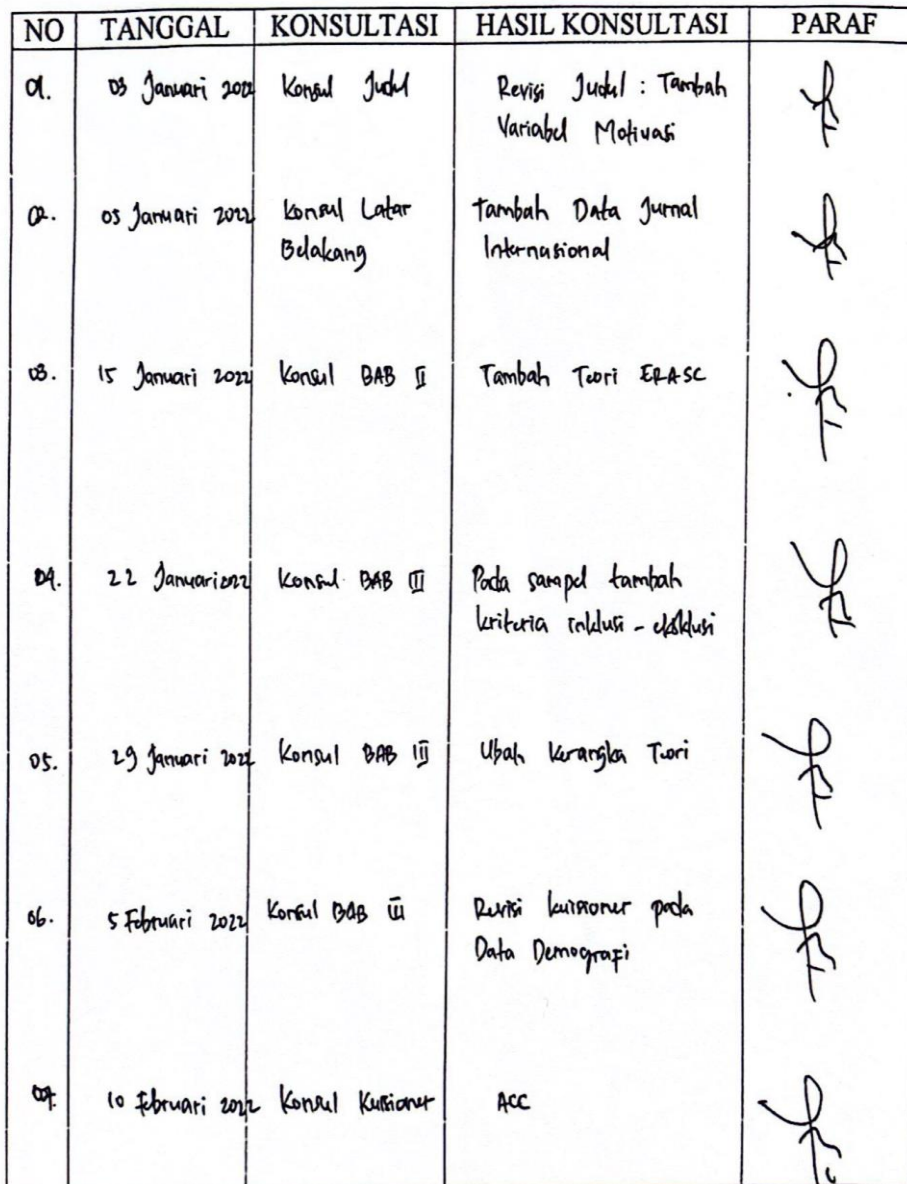 NO TANGGAL KONSULTASI HASIL KONSULTASI PARAF
01. 03 Januari 2022 Konsul Judul Revisi Judul : Tambah
Variabel Motivasi
02. 05 Januari 2022 Konsul Latar Tambah Data Jurnal
Belakang Internasional
03. 15 Januari 2022 Konsul BAB II Tambah Teori ERASC
04. 22 Januari 2022 Konsul BAB III Pada sampel tambah
kriteria inklusi - eksklusi
05. 29 Januari 2022 Konsul BAB III Ubah Kerangka Teori
06. 5 Februari 2022 Konsul BAB III Revisi kuisioner pada
Data Demografi
07. 10 Februari 2022 Konsul Kuisioner ACC